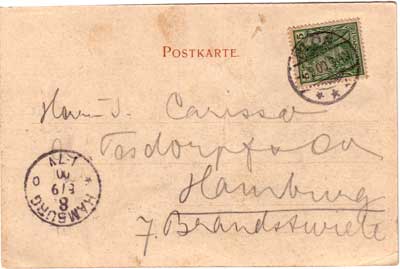 POSTKARTE.
5 5
Herrn J. Carissa
Tesdorpf & Co
Hamburg
7. Brandstwiete
HAMBURG
8
5/9
00
1-7N